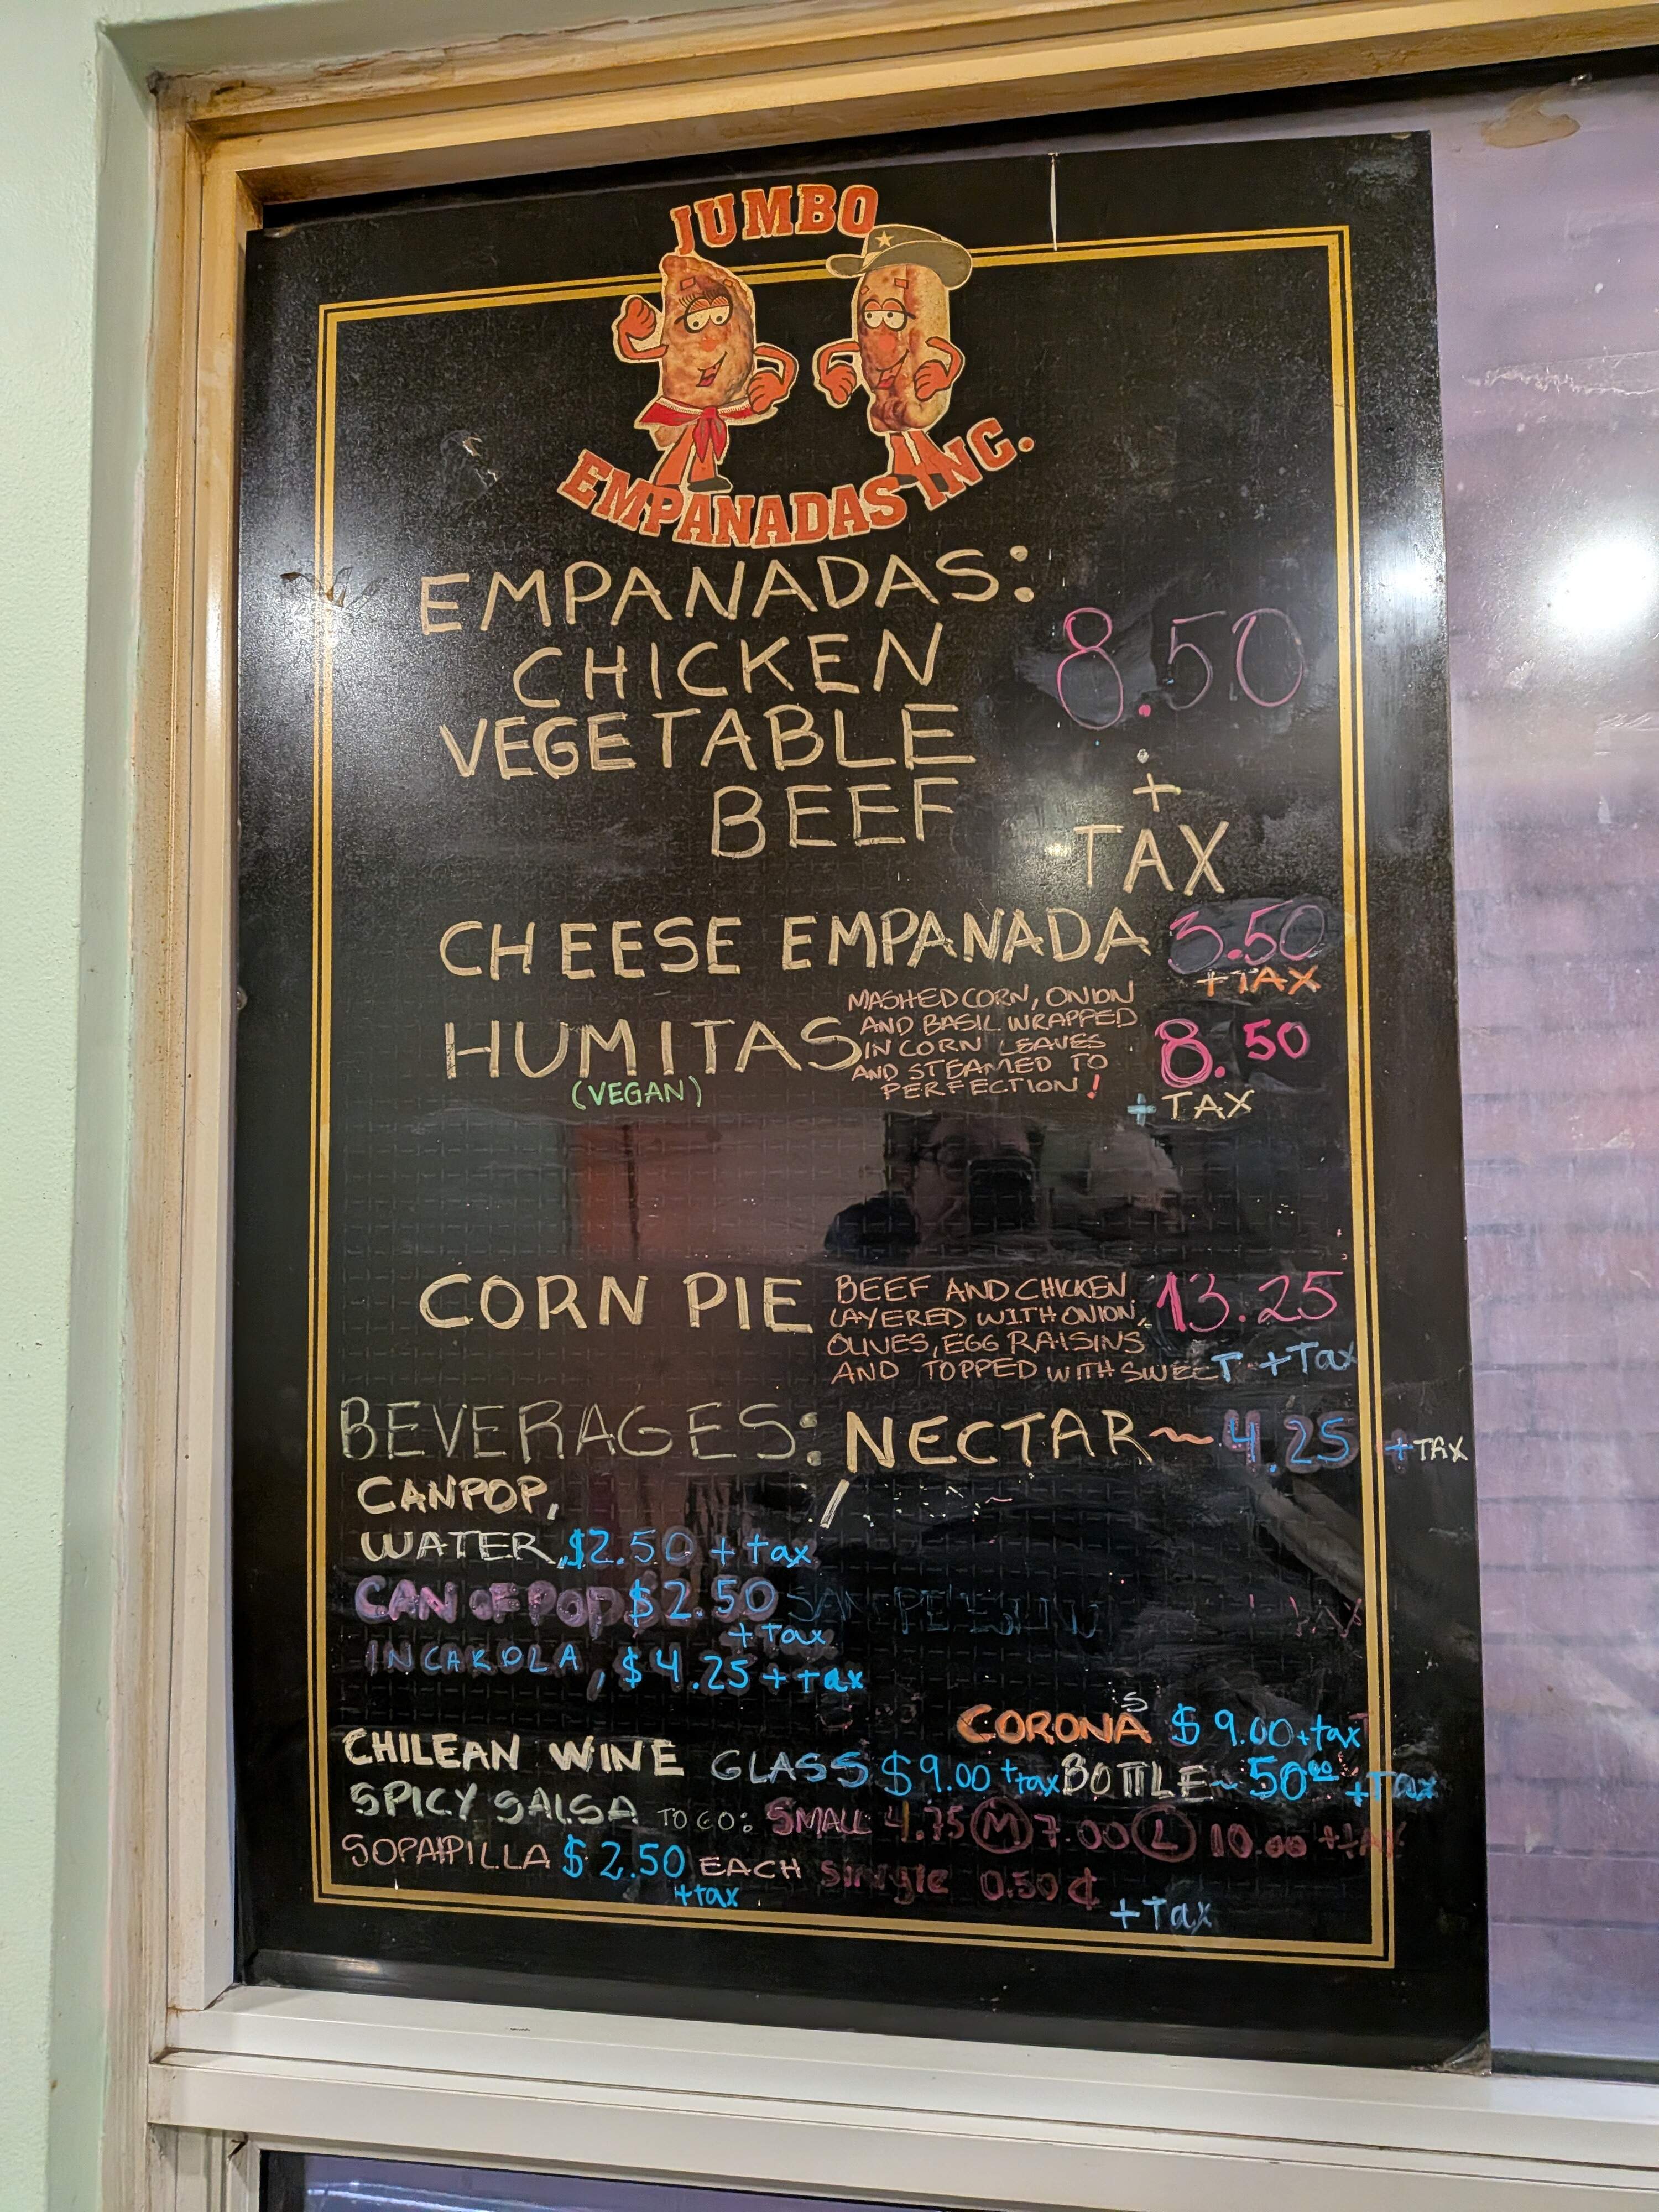 JUMBO
EMPANADAS INC.
EMPANADAS:
CHICKEN 8.50
VEGETABLE
BEEF
+
TAX
CHEESE EMPANADA 3.50
+TAX
HUMITAS
(VEGAN)
MASHED CORN, ONION
AND BASIL WRAPPED
IN CORN LEAVES
AND STEAMED TO
PERFECTION!
8.50
+ TAX
CORN PIE
BEEF AND CHICKEN
LAYERED WITH ONION,
OLIVES, EGG RAISINS
AND TOPPED WITH SWEET
13.25
+Tax
BEVERAGES: NECTAR~ 4.25 +TAX
CANPOP,
WATER, $2.50 + tax
CAN OF POP $2.50
+ Tax
INCAKOLA, $4.25 + tax
CORONA S $ 9.00+tax
CHILEAN WINE GLASS $9.00 +tax BOTTLE~ 50.00 +Tax
SPICY SALSA TO GO: SMALL 4.75 M 7.00 L 10.00 +TAX
SOPAIPILLA $2.50 EACH single 0.50¢
+tax +Tax